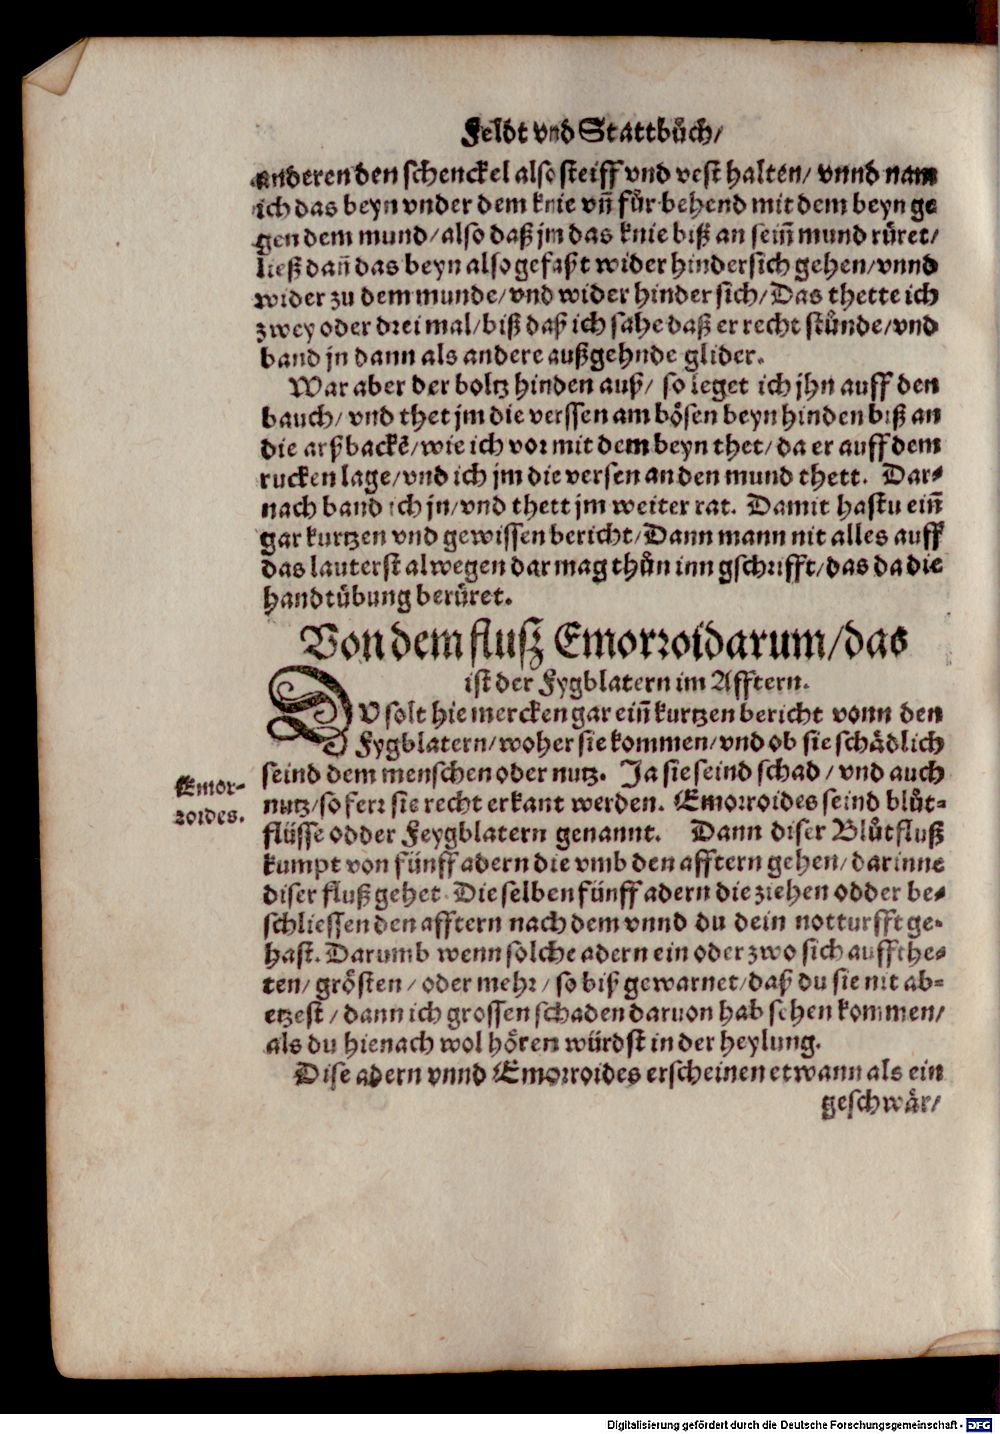 Feldt vnd Stattbůch/
anderen den schenckel also steiff vnd vest halten/ vnnd nam
ich das beyn vnder dem knie vñ fůr behend mit dem beyn ge
gen dem mund/also daß jm das knie biß an seiñ mund rüret/
ließ dañ das beyn also gefaßt wider hindersich gehen/vnnd
wider zu dem munde/vnd wider hinder sich/Das thette ich
zwey oder drei mal/biß daß ich sahe daß er recht stůnde/vnd
band jn dann als andere außgehnde glider.
War aber der boltz hinden auß/ so leget ich jhn auff den
bauch/ vnd thet jm die verssen am bösen beyn hinden biß an
die arßbackē/wie ich vor mit dem beyn thet/da er auff dem
rucken lage/vnd ich jm die versen an den mund thett. Dar-
nach band ich jn/vnd thett jm weiter rat. Damit hastu eiñ
gar kurtzen vnd gewissen bericht/Dann mann nit alles auff
das lauterst alwegen dar mag thůn inn gschrifft/das da die
handtübung berüret.
Von dem fluß Emorroidarum/das
ist der Fygblatern im Afftern.
DV solt hie mercken gar eiñ kurtzen bericht vonn den
Fygblatern/woher sie kommen/vnd ob sie schädlich
seind dem menschen oder nutz. Ja sie seind schad/vnd auch
Emor-
roides.
nutz/so ferr sie recht erkant werden. Emorroides seind blůt-
flüsse odder Feygblatern genannt. Dann diser Blůtfluß
kumpt von fünff adern die vmb den afftern gehen/darinne
diser fluß gehet. Die selben fünff adern die ziehen odder be-
schliessen den afftern nach dem vnnd du dein notturfft ge-
hast. Darumb wenn solche adern ein oder zwo sich auffthe-
ten/ grösten/oder mehr/ so biß gewarnet/daß du sie nit ab-
etzest/dann ich grossen schaden daruon hab sehen kommen/
als du hienach wol hören würdst in der heylung.
Dise adern vnnd Emorroides erscheinen etwann als ein
geschwär/
Digitalisierung gefördert durch die Deutsche Forschungsgemeinschaft - DFG